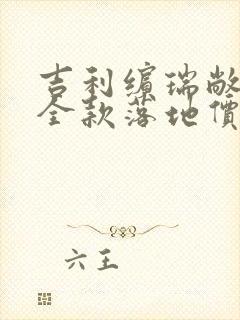 吉利缤瑞敞
全款落地價
六王